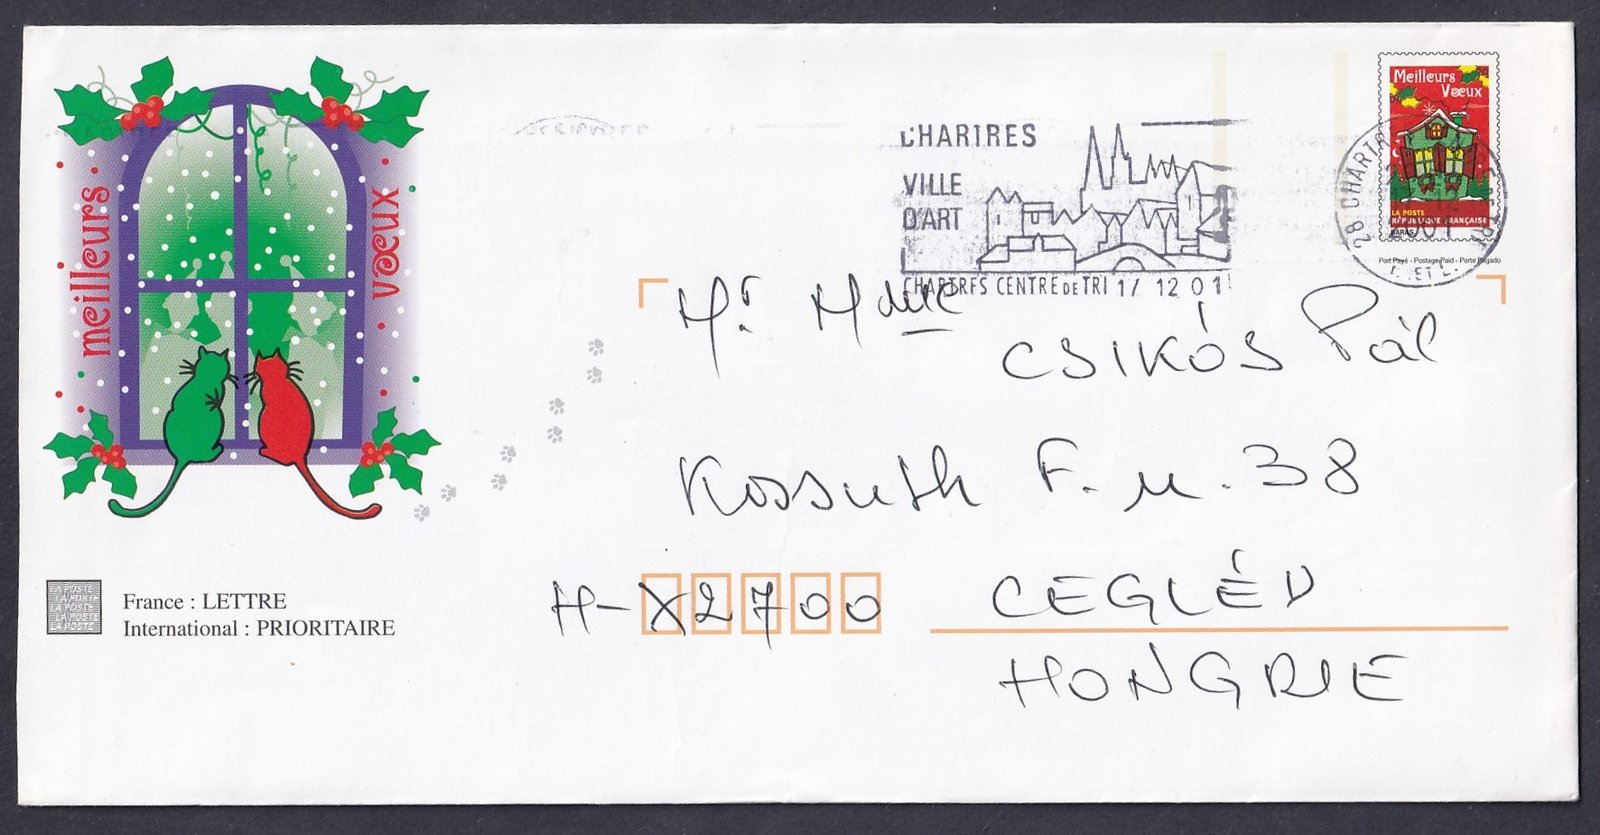 meilleurs vœux
Meilleurs
Vœux
LA POSTE
RÉPUBLIQUE FRANÇAISE
Port Payé - Postage Paid - Porte Pagado
CHARTRES
VILLE
D'ART
CHARTRES CENTRE DE TRI 17 12 01
28 CHARTRES
E. ET L.
Mr. Mdme
CSIKÓS Pál
Kossuth F. u. 38
H-X2700 CEGLÉD
HONGRIE
LA POSTE
LA POSTE
LA POSTE
LA POSTE
LA POSTE
France : LETTRE
International : PRIORITAIRE